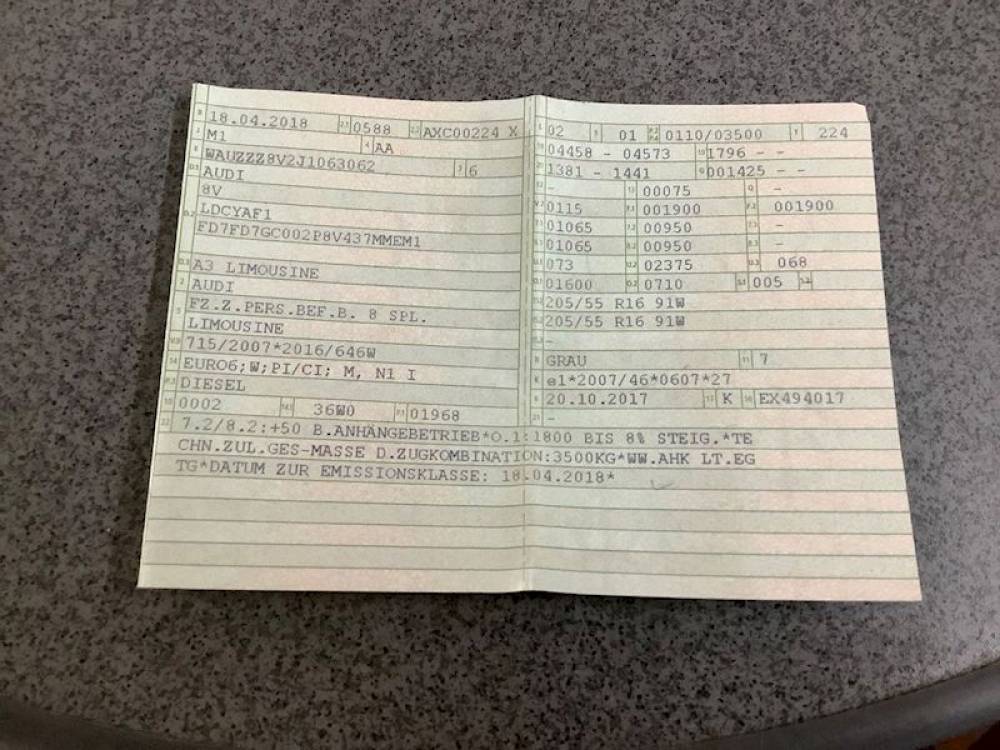 18.04.2018 0588 AXC00224 X
M1 AA
WAUZZZ8V2J1063062 6
AUDI
8V
LDCYAF1
FD7FD7GC002P8V437MMEM1
A3 LIMOUSINE
AUDI
FZ.Z.PERS.BEF.B. 8 SPL.
LIMOUSINE
715/2007*2016/646W
EURO6;W;PI/CI; M, N1 I
DIESEL
0002 36W0 01968
02 01 0110/03500 224
04458 - 04573 1796 - -
1381 - 1441 001425 - -
- 00075 -
0115 001900 001900
01065 00950 -
01065 00950 -
073 02375 068
01600 0710 005
205/55 R16 91W
205/55 R16 91W
-
GRAU 7
e1*2007/46*0607*27
20.10.2017 K EX494017
-
7.2/8.2:+50 B.ANHÄNGEBETRIEB*O.1:1800 BIS 8% STEIG.*TE
CHN.ZUL.GES-MASSE D.ZUGKOMBINATION:3500KG*WW.AHK LT.EG
TG*DATUM ZUR EMISSIONSKLASSE: 18.04.2018*